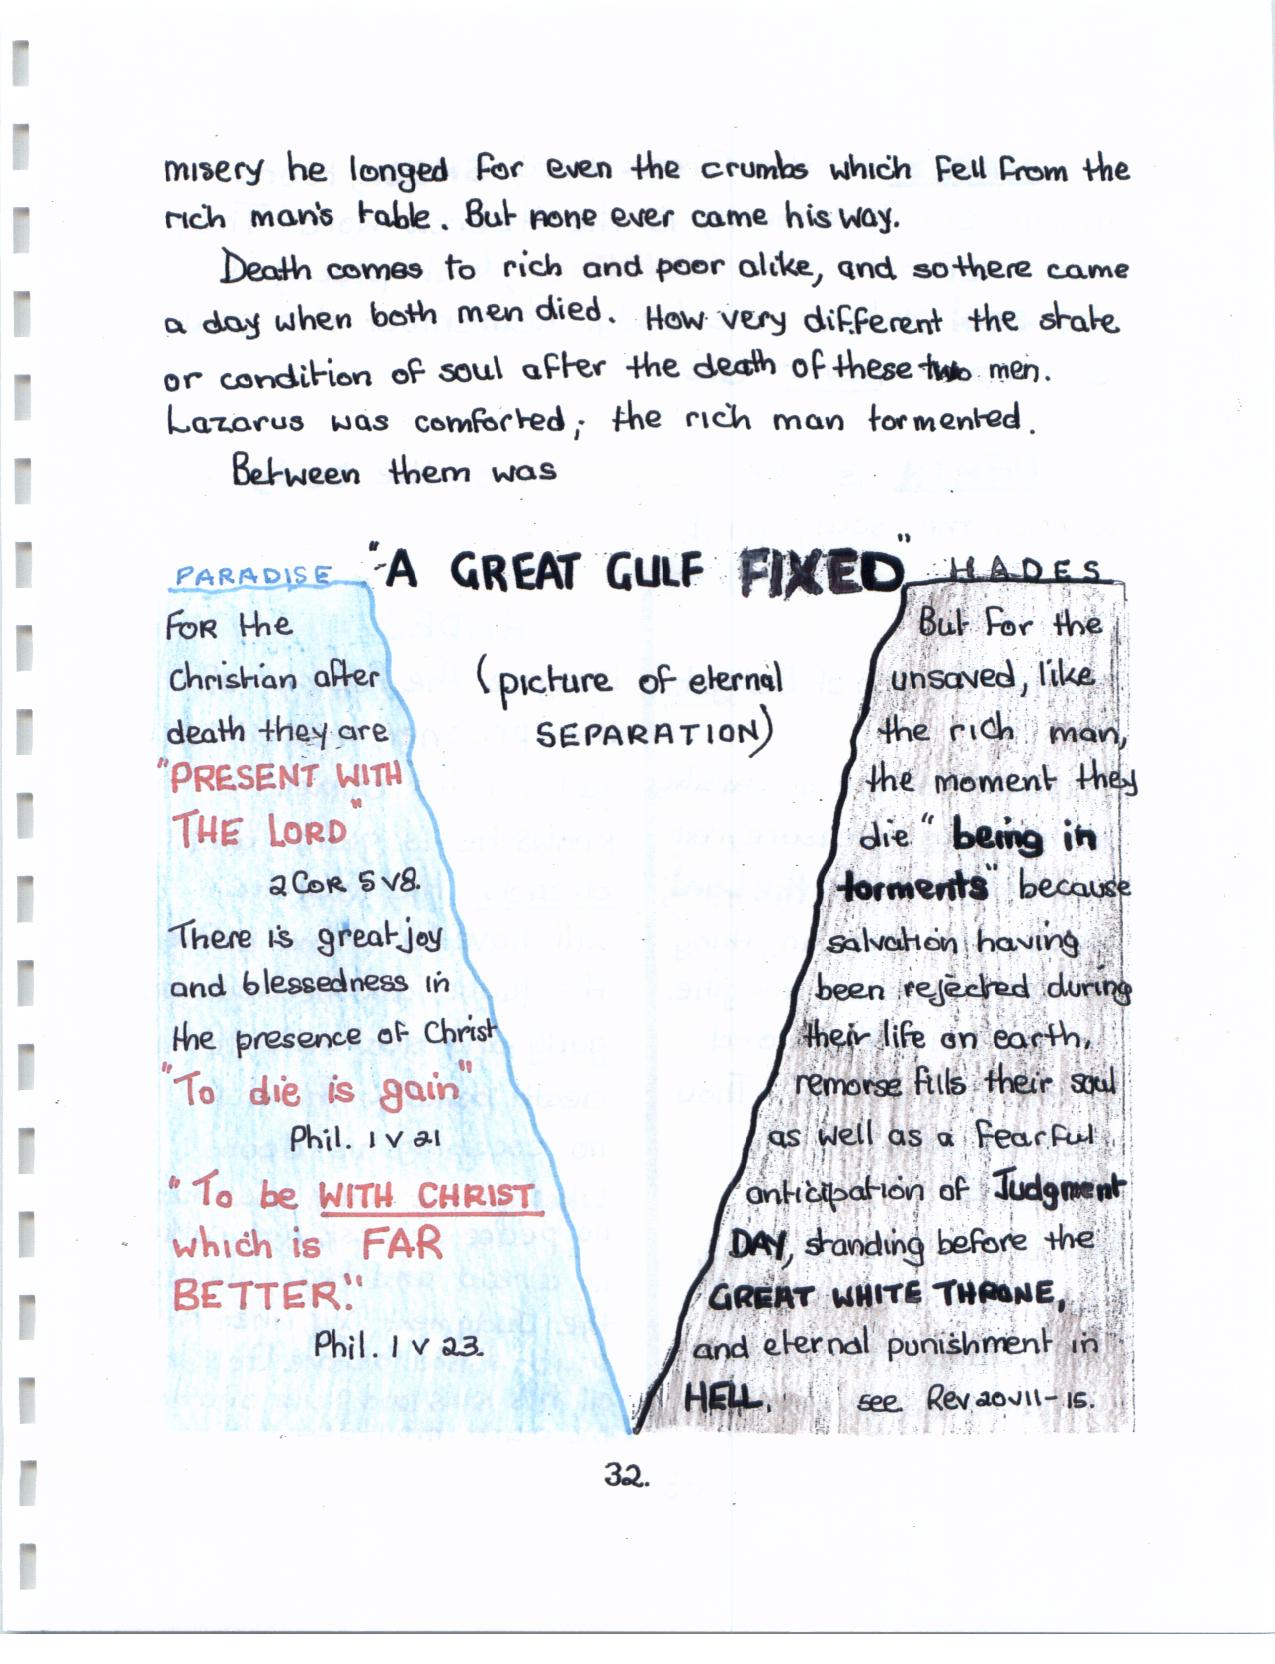 misery he longed for even the crumbs which fell from the
rich man's table. But none ever came his way.
Death comes to rich and poor alike, and so there came
a day when both men died. How very different the state
or condition of soul after the death of these two men.
Lazarus was comforted; the rich man tormented.
Between them was
"A GREAT GULF FIXED"
(picture of eternal
SEPARATION)
PARADISE
FOR the
Christian after
death they are
"PRESENT WITH
THE LORD"
2 COR 5 v8.
There is great joy
and blessedness in
the presence of Christ
"To die is gain"
Phil. 1 v 21
"To be WITH CHRIST
which is FAR
BETTER."
Phil. 1 v 23.
HADES
But for the
unsaved, like
the rich man,
the moment they
die "being in
torments" because
salvation having
been rejected during
their life on earth,
remorse fills their soul
as well as a fearful
anticipation of Judgment
DAY, standing before the
GREAT WHITE THRONE,
and eternal punishment in
HELL. see Rev 20 v11-15.
32.